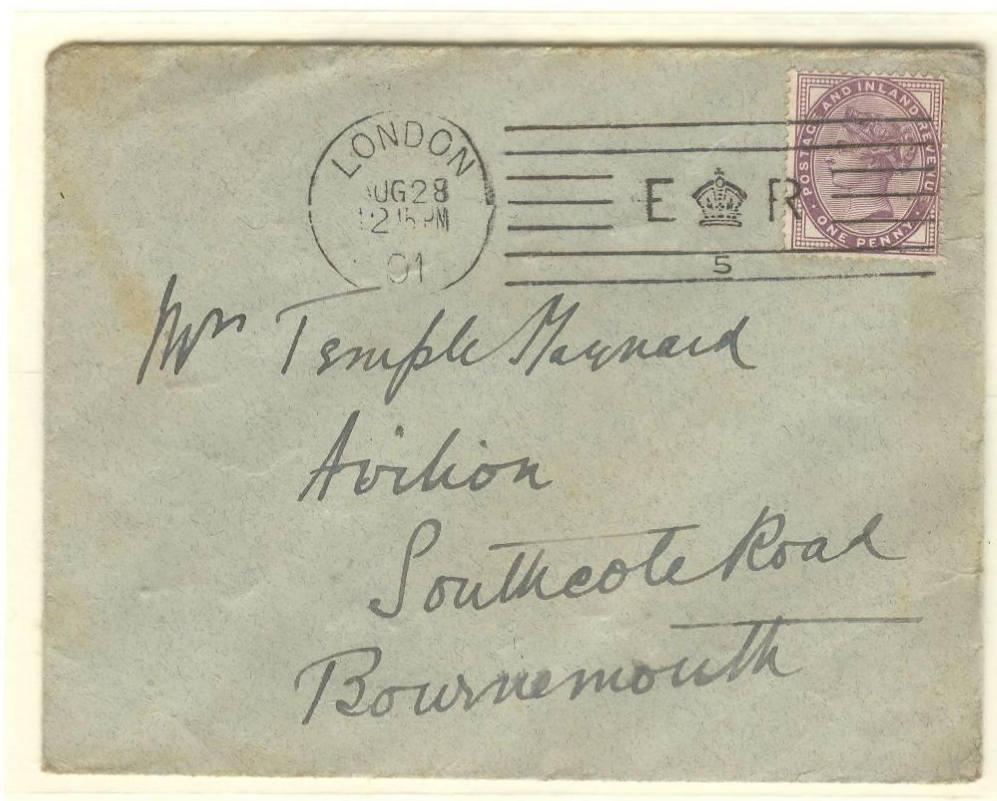 LONDON
AUG 28
12.15 PM
01
E R
5
POSTAGE AND INLAND REVENUE
ONE PENNY
Mrs Temple Maynard
Avilion
Southcote Road
Bournemouth